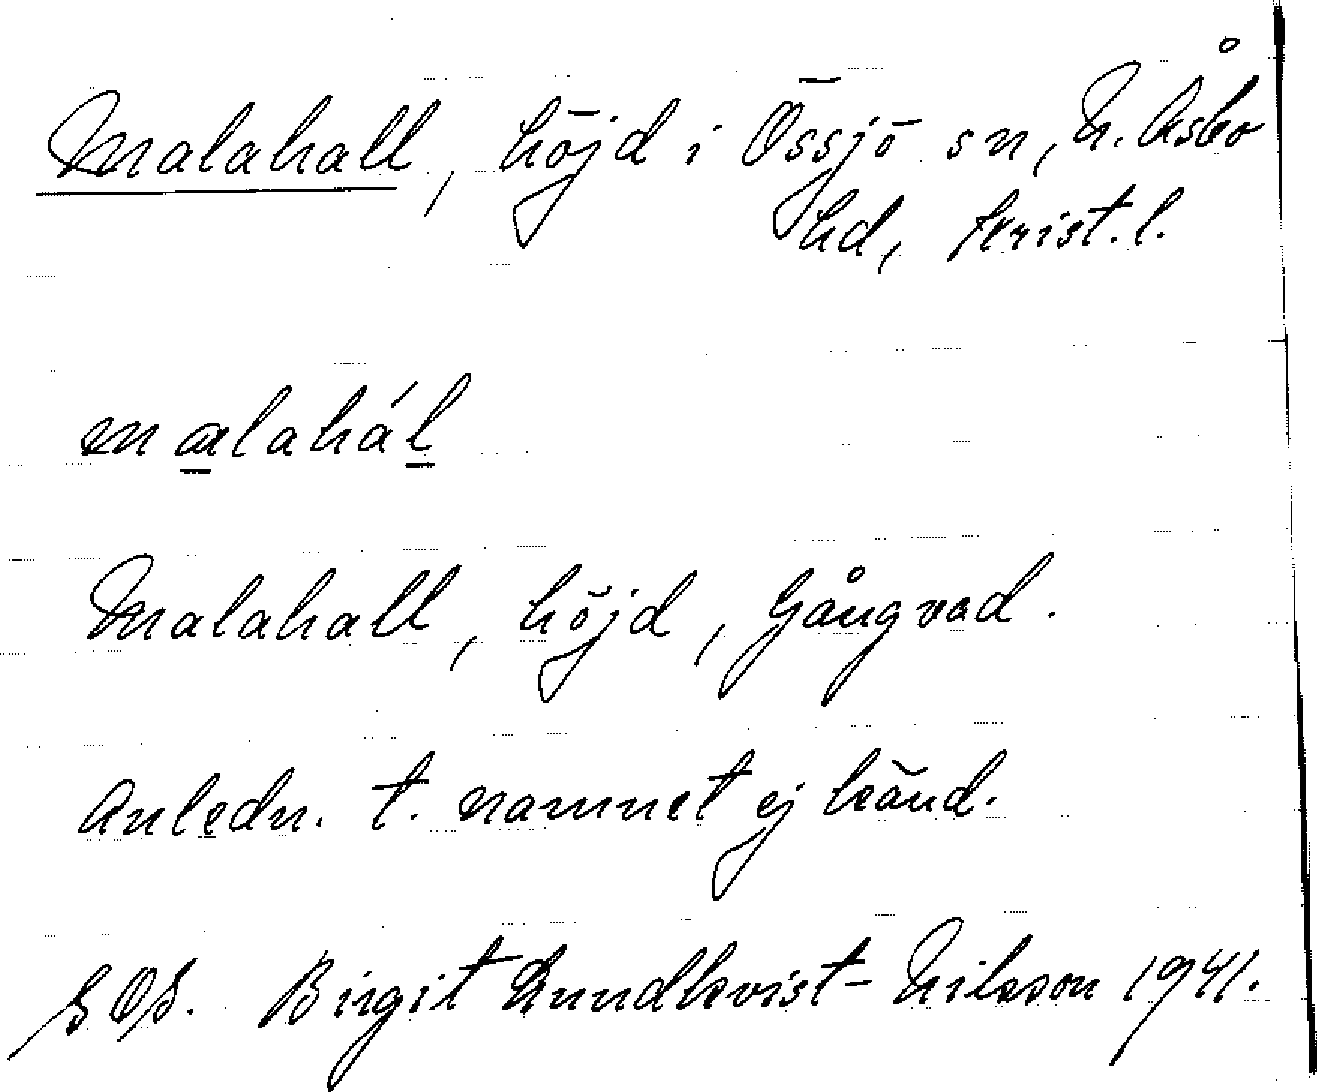 Malahall, höjd i Össjö sn, N. Åsbo
hd, Krist. l.
malahál
Malahall, höjd, Gångvad.
Anledn. t. namnet ej känd.
SOS. Birgit Lundkvist-Nilsson 1941.